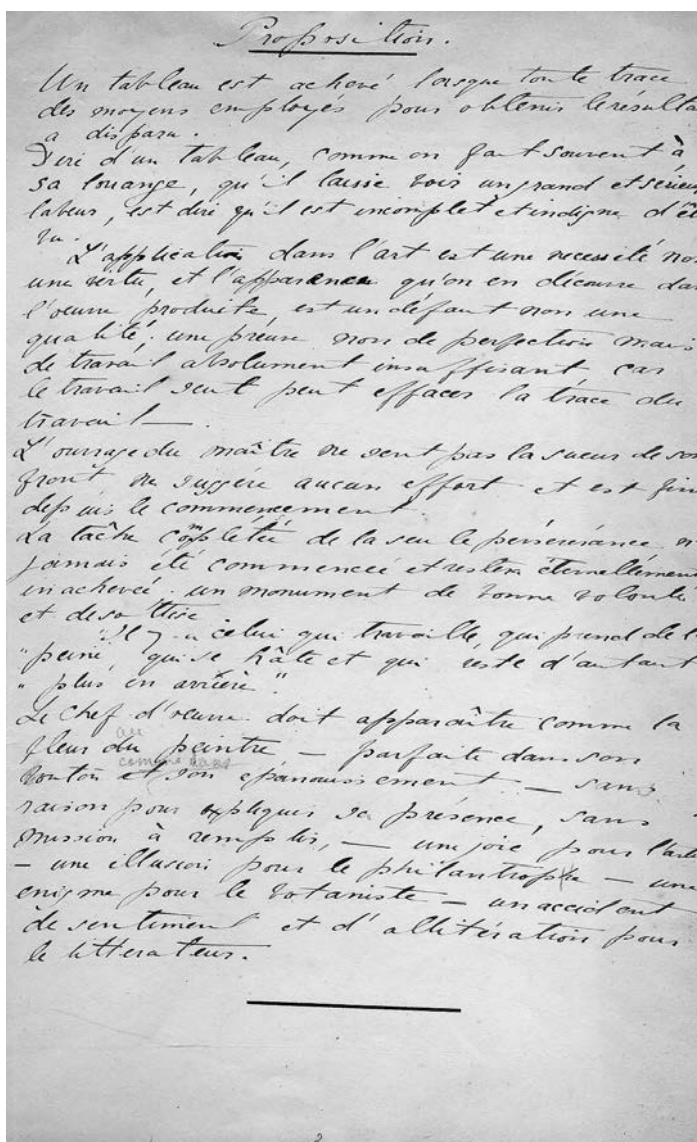 Proposition.
Un tableau est achevé lorsque toute trace
des moyens employés pour obtenir le résulta
a disparu.
Dire d'un tableau, comme on fait souvent à
sa louange, qu'il laisse voir un grand et sérieu
labeur, est dire qu'il est incomplet et indigne d'êt
vu.
L'application dans l'art est une necessité non
une vertu, et l'apparence qu'on en découvre dan
l'oeuvre produite, est un défaut non une
qualité; une preuve non de perfection mais
de travail absolument insuffisant car
le travail seul peut effacer la trace du
travail —.
L'ouvrage du maître ne sent pas la sueur de son
front ne suggére aucun effort et est fini
depuis le commencement.
La tâche complétée de la seule persévérance n'
jamais été commencée et restera éternellement
inachevée: un monument de bonne volonté
et de sottise
"Il y a celui qui travaille, qui prend de l
"peine, qui se hâte et qui reste d'autant
" plus en arrière".
Le chef d'oeuvre doit apparaître comme la
fleur au du peintre — parfaite dans son
bouton et comme dans son épanouissement — sans
raison pour expliquer sa présence, sans
mission à remplir, — une joie pour l'arti
— une illusion pour le philantrophe — une
enigme pour le botaniste — un accident
de sentiment et d'allitération pour
le litterateur.
2